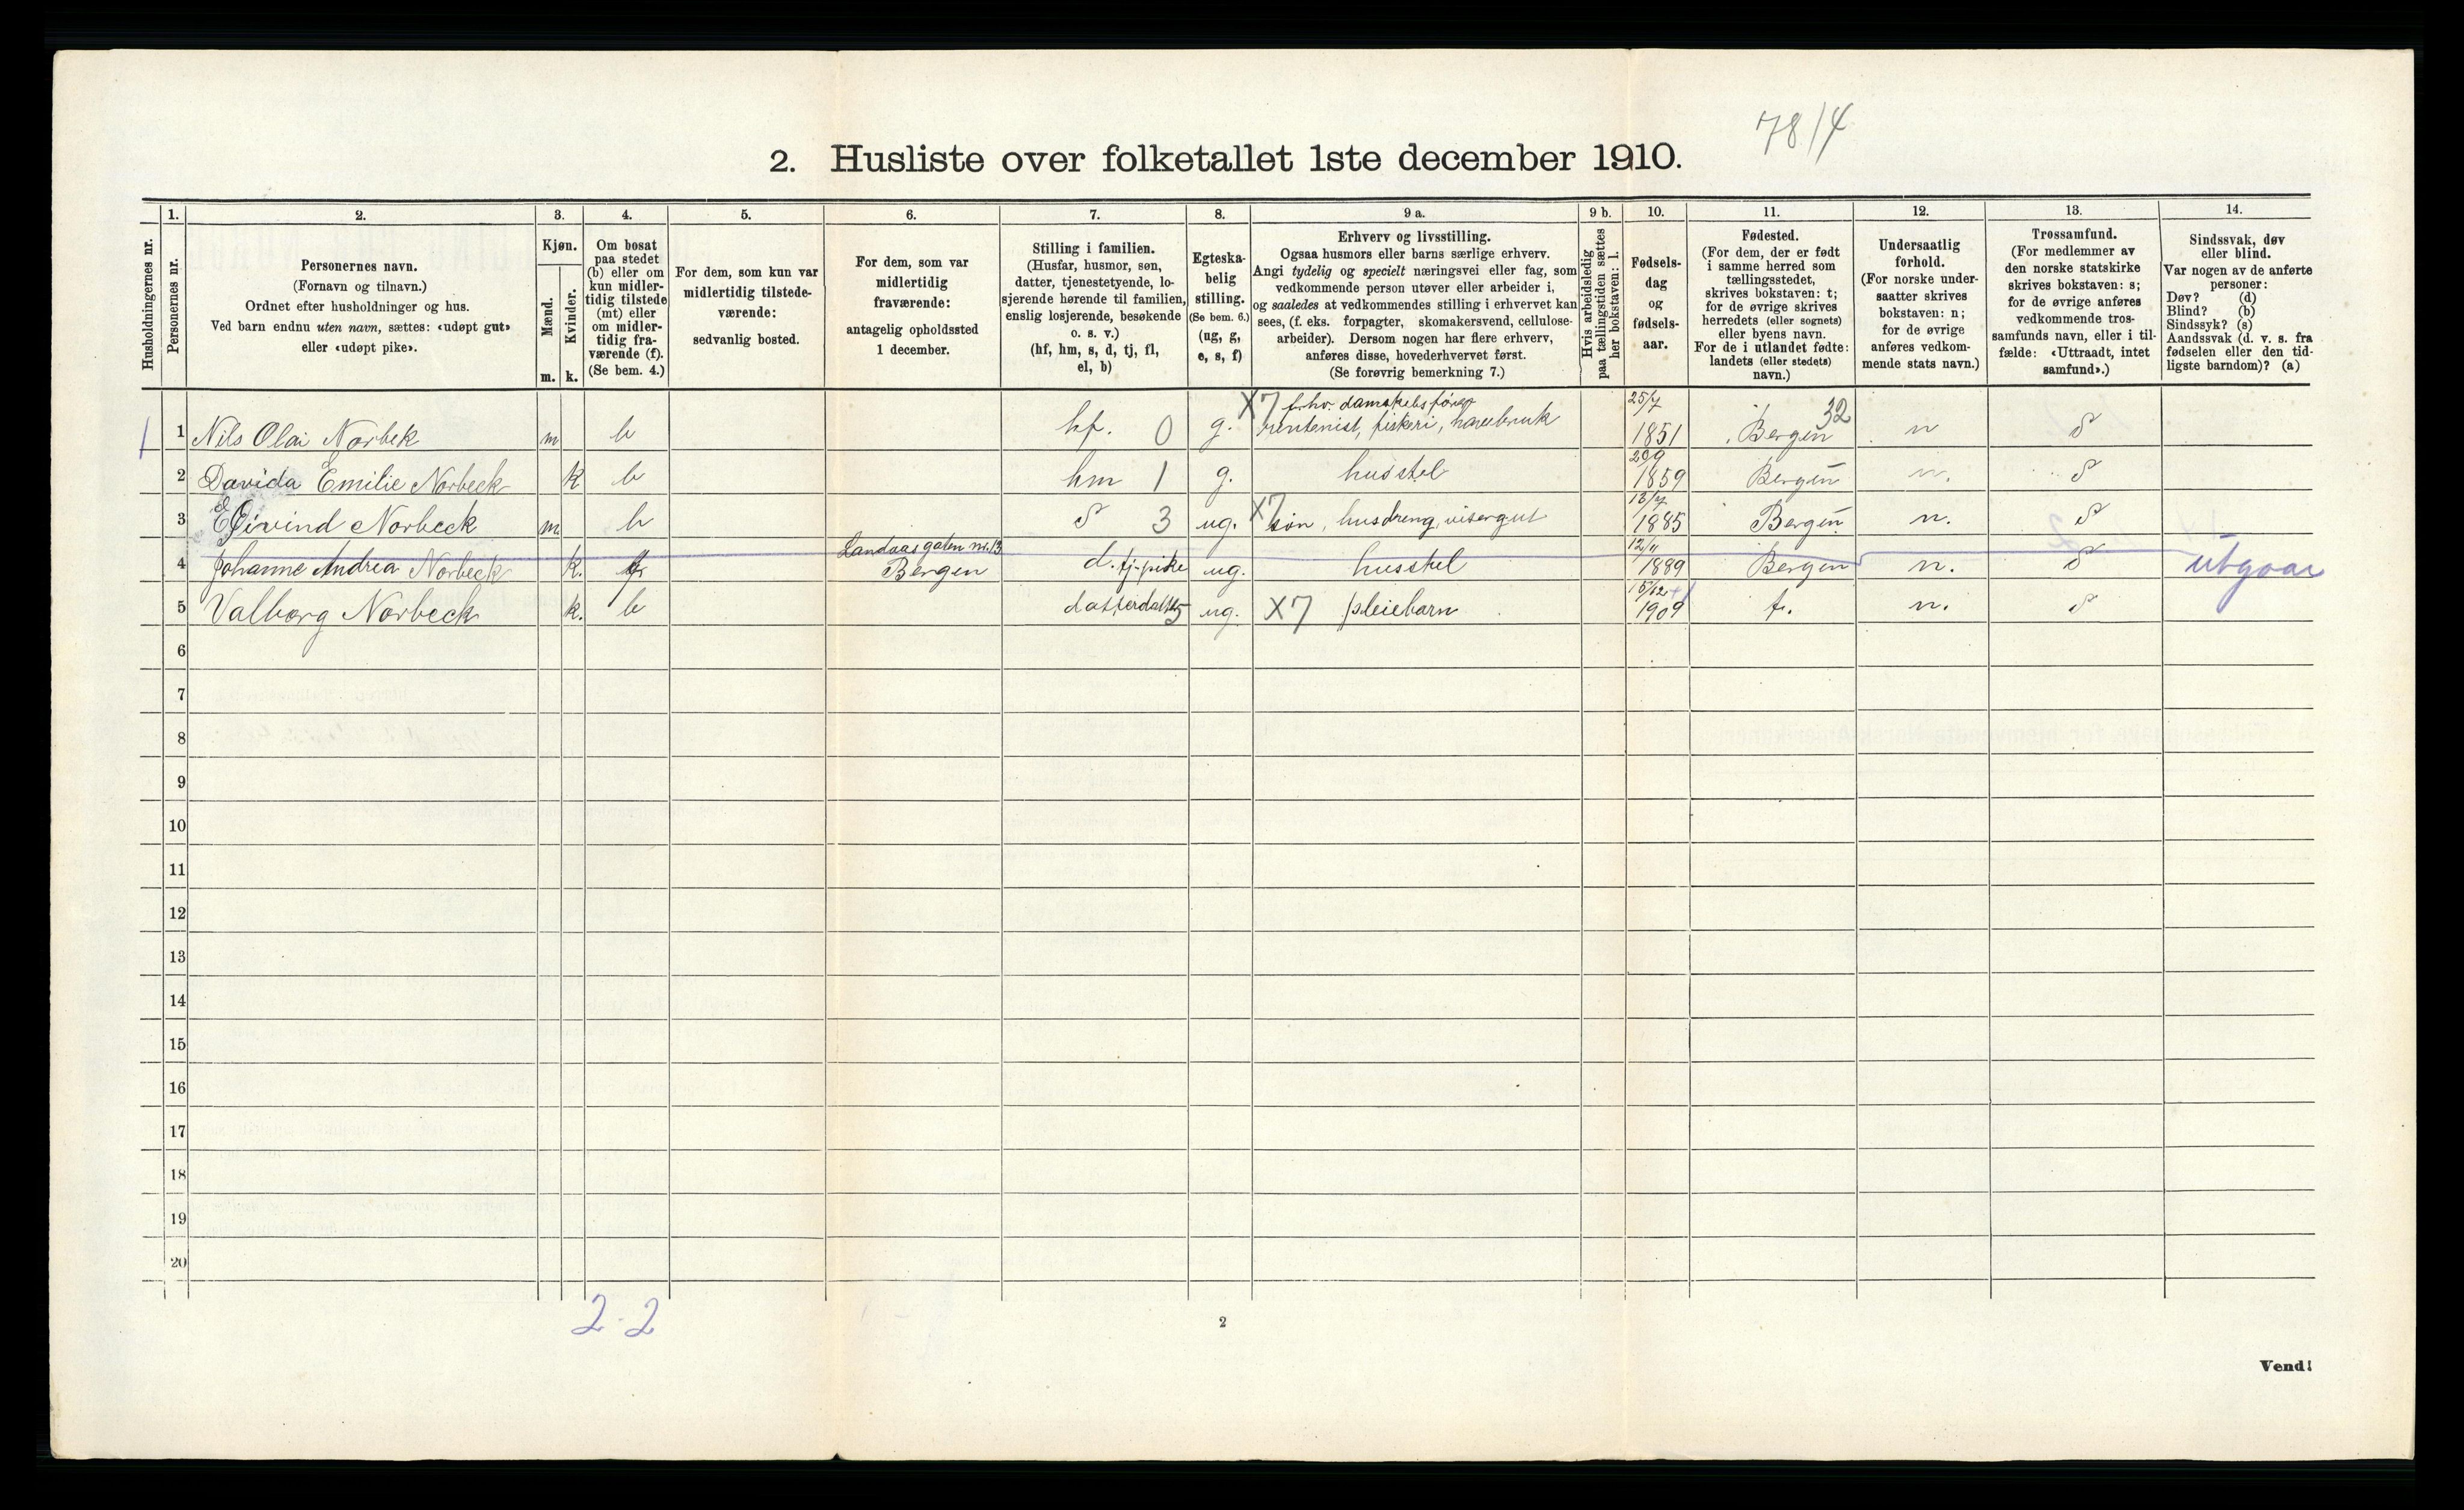 78/4
2. Husliste over folketallet 1ste december 1910.
Husholdningernes nr.
1.
Personernes nr.
2.
Personernes navn.
(Fornavn og tilnavn.)
Ordnet efter husholdninger og hus.
Ved barn endnu uten navn, sættes: «udøpt gut»
eller «udøpt pike».
3.
Kjøn.
Mænd.
Kvinder.
m. k.
4.
Om bosat
paa stedet
(b) eller om
kun midler-
tidig tilstede
(mt) eller
om midler-
tidig fra-
værende (f).
(Se bem. 4.)
5.
For dem, som kun var
midlertidig tilstede-
værende:
sedvanlig bosted.
6.
For dem, som var
midlertidig
fraværende:
antagelig opholdssted
1 december.
7.
Stilling i familien.
(Husfar, husmor, søn,
datter, tjenestetyende, lo-
sjerende hørende til familien,
enslig losjerende, besøkende
o. s. v.)
(hf, hm, s, d, tj, fl,
el, b)
8.
Egteska-
belig
stilling.
(Se bem. 6.)
(ug, g,
e, s, f)
9 a.
Erhverv og livsstilling.
Ogsaa husmors eller barns særlige erhverv.
Angi tydelig og specielt næringsvei eller fag, som
vedkommende person utøver eller arbeider i,
og saaledes at vedkommendes stilling i erhvervet kan
sees, (f. eks. forpagter, skomakersvend, cellulose-
arbeider). Dersom nogen har flere erhverv,
anføres disse, hovederhvervet først.
(Se forøvrig bemerkning 7.)
9 b.
Hvis arbeidsledig
paa tællingstiden sættes
her bokstaven: l.
10.
Fødsels-
dag
og
fødsels-
aar.
11.
Fødested.
(For dem, der er født
i samme herred som
tællingsstedet,
skrives bokstaven: t;
for de øvrige skrives
herredets (eller sognets)
eller byens navn.
For de i utlandet fødte:
landets (eller stedets)
navn.)
12.
Undersaatlig
forhold.
(For norske under-
saatter skrives
bokstaven: n;
for de øvrige
anføres vedkom-
mende stats navn.)
13.
Trossamfund.
(For medlemmer av
den norske statskirke
skrives bokstaven: s;
for de øvrige anføres
vedkommende tros-
samfunds navn, eller i til-
fælde: «Uttraadt, intet
samfund».)
14.
Sindssvak, døv
eller blind.
Var nogen av de anførte
personer:
Døv? (d)
Blind? (b)
Sindssyk? (s)
Aandssvak (d. v. s. fra
fødselen eller den tid-
ligste barndom)? (a)
X7 25/7
1 1 Nils Olai Norbek m b hf. 0 g. rentenist, fiskeri, havebruk 1851 Bergen 32 n s
2 Davida Emilie Norbeck k b hm 1 g. husstel 1859 Bergen n. s
13/7
3 Øivind Norbeck m. b s 3 ug. X7 søn, husdreng, visergut 1885 Bergen n. s
Landaasgaten nr. 13 12/11
4 Johanne Andrea Norbeck k. Bergen d. tj-pike ug. husstel 1889 Bergen n. s utgaar
15/12
5 Valborg Norbeck k. b 5 ug. X7 pleiebarn 1909 t. n. s
6
7
8
9
10
11
12
13
14
15
16
17
18
19
20
2-2
2
Vend!